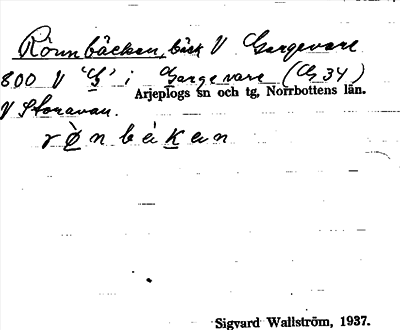 Rönnbäcken, bäck V Gargevare
800 V "G" i Gargevare (G 34)
Arjeplogs sn och tg, Norrbottens län.
V Storavan.
rø̀nbèkan
Sigvard Wallström, 1937.